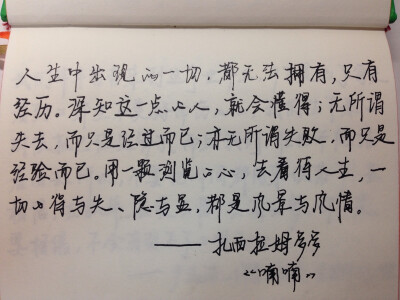 人生中出现的一切，都无法拥有，只有
经历。深知这一点的人，就会懂得：无所谓
失去，而只是经过而已；亦无所谓失败，而只是
经验而已。用一颗浏览的心，去看待人生，一
切的得与失、隐与显，都是风景与风情。
——扎西拉姆多多
《喃喃》